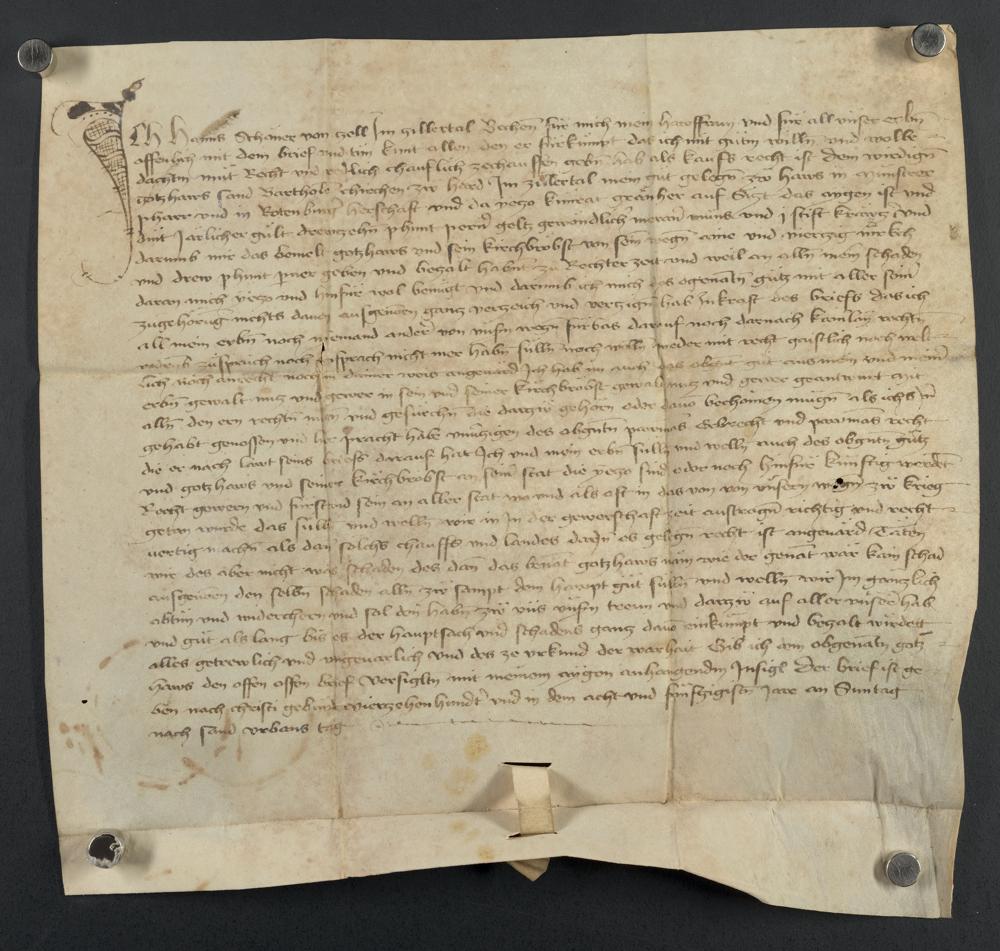 Ich Hanns Schöner von Zell Im Zillertal Bechen für mich mein hawsffraw und für all unser erbn
offenlich mit dem brief und tun kunt allen den er fürkümpt das ich mit gutm willn und wolbe
dachtm müt Recht und redlich chauflich zechauffen gebn hab als kaufs recht ist dem wirdign
gotzhaws sand Bartholome chirchen zw hard Im zilertal mein gut gelegn zw haws in Münstrer
pharr und in Rotenburger herschaft und da yezo kunrat auf Sizt das aigen ist und
dint Jarlicher gült drewzehn phunt perner geltz gewondlich meraner münß und j stift kräwczer und
darumb mir das bemelt gotzhaws und sein kirchbröbst von sein wegn aine und vierczig markch
und drew phunt perner geben und bezalt habnt zu Rechter zeit und weil an alln mein schaden
daran mich yezo und hinfür wol benügt und darumb ich mich des obgenaten gutz mit aller seiner
zugehörung nichts davon ausgenomen ganz verzeich und verzign hab In kraft des briefs das ich
all mein erbn noch niemand ander von unsern wegn fürbas darauf noch darnach kainlay recht
vodrung zuspräch noch ansprach nicht mer habn sulln noch welln weder mit recht geistlich noch welt
lich noch anrecht noch in dhainer weis angevärd Ich hab im auch das obgenant gut aus mein und meiner
erbn gewalt nutz und gewer in sein und seiner kirchbröbst gewalt nutz und gewer geantwurt mit
alln den ern rechtn nützn und gesuechn die darzw gehörn oder davo bechömen mügn als ichs In
gehabt genossen und her pracht habe unuczigen des obgntn pawmans Erbrecht und pawmans recht
die er nach lawt seins briefs darauf hat Ich und mein erbn sulln und welln auch des obgntn gutz
und gotzhaws und seiner kirchbröbst an seiner stat die yezo sind oder noch hinfür künftig werdent
Recht gewern und fürstand sein an aller stat wo und als oft in das von von unsern wegn zw krieg
getan wurde das sulln und welln wir in In der gewerschaft zeit austragn richtig und recht
vertig machn als dan solchs chauffs und landes darIn es gelegn recht ist angevärd Täten
wir des aber nicht was schaden des dan das benant gotzhaws näm wie der genant war kain schad
ausgenomen den selbn schaden alln zw sampt dem hawpt gut sulln und welln wir Im gänzlich
abtun und widerchern und sol den habn zw uns unsern trewn und darzw auf aller unser hab
und gut als lang bis es der hauptsach und schadens ganz davo enkümpt und bezalt wirdett
alles getrewlich und ungevarlich und des ze urkund der warhait Gib ich am obgenaten gotz
haws den offen offen brief versigltn mit meinem aygen anhangendm Insigl Der brief ist ge
ben nach christi geburd vierzehenhundert und in dem acht und fünfzigistn Jare an Suntag
nach sand urbans tag